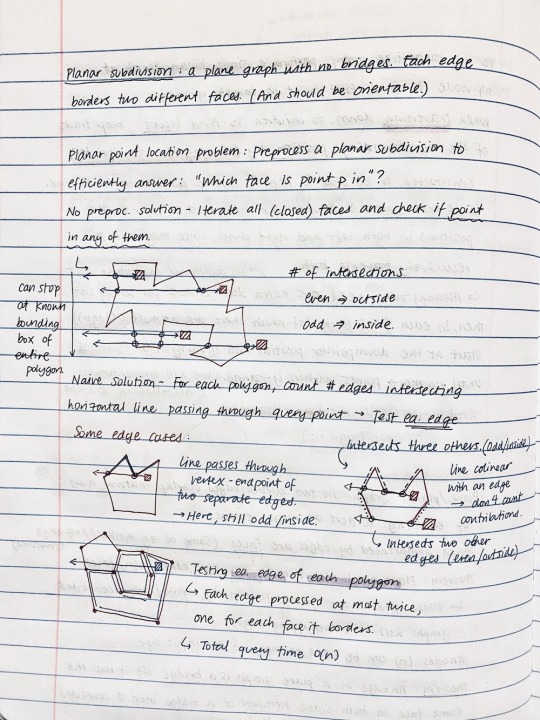 Planar subdivision : a plane graph with no bridges. Each edge
borders two different faces. (And should be orientable.)
Planar point location problem : Preprocess a planar subdivision to
efficiently answer: "Which face is point p in"?
No preproc. solution - Iterate all (closed) faces and check if point
in any of them.
can stop
at known
bounding
box of
entire
polygon.
# of intersections
even → outside
odd → inside.
Naive solution - For each polygon, count # edges intersecting
horizontal line passing through query point → Test ea. edge
Some edge cases:
Line passes through
vertex - endpoint of
two separate edges.
→ Here, still odd/inside.
Intersects three others. (Odd/inside)
Line colinear
with an edge
→ don't count
contributions.
Intersects two other
edges (even/outside)
Testing ea. edge of each polygon
Each edge processed at most twice,
one for each face it borders.
Total query time O(n)